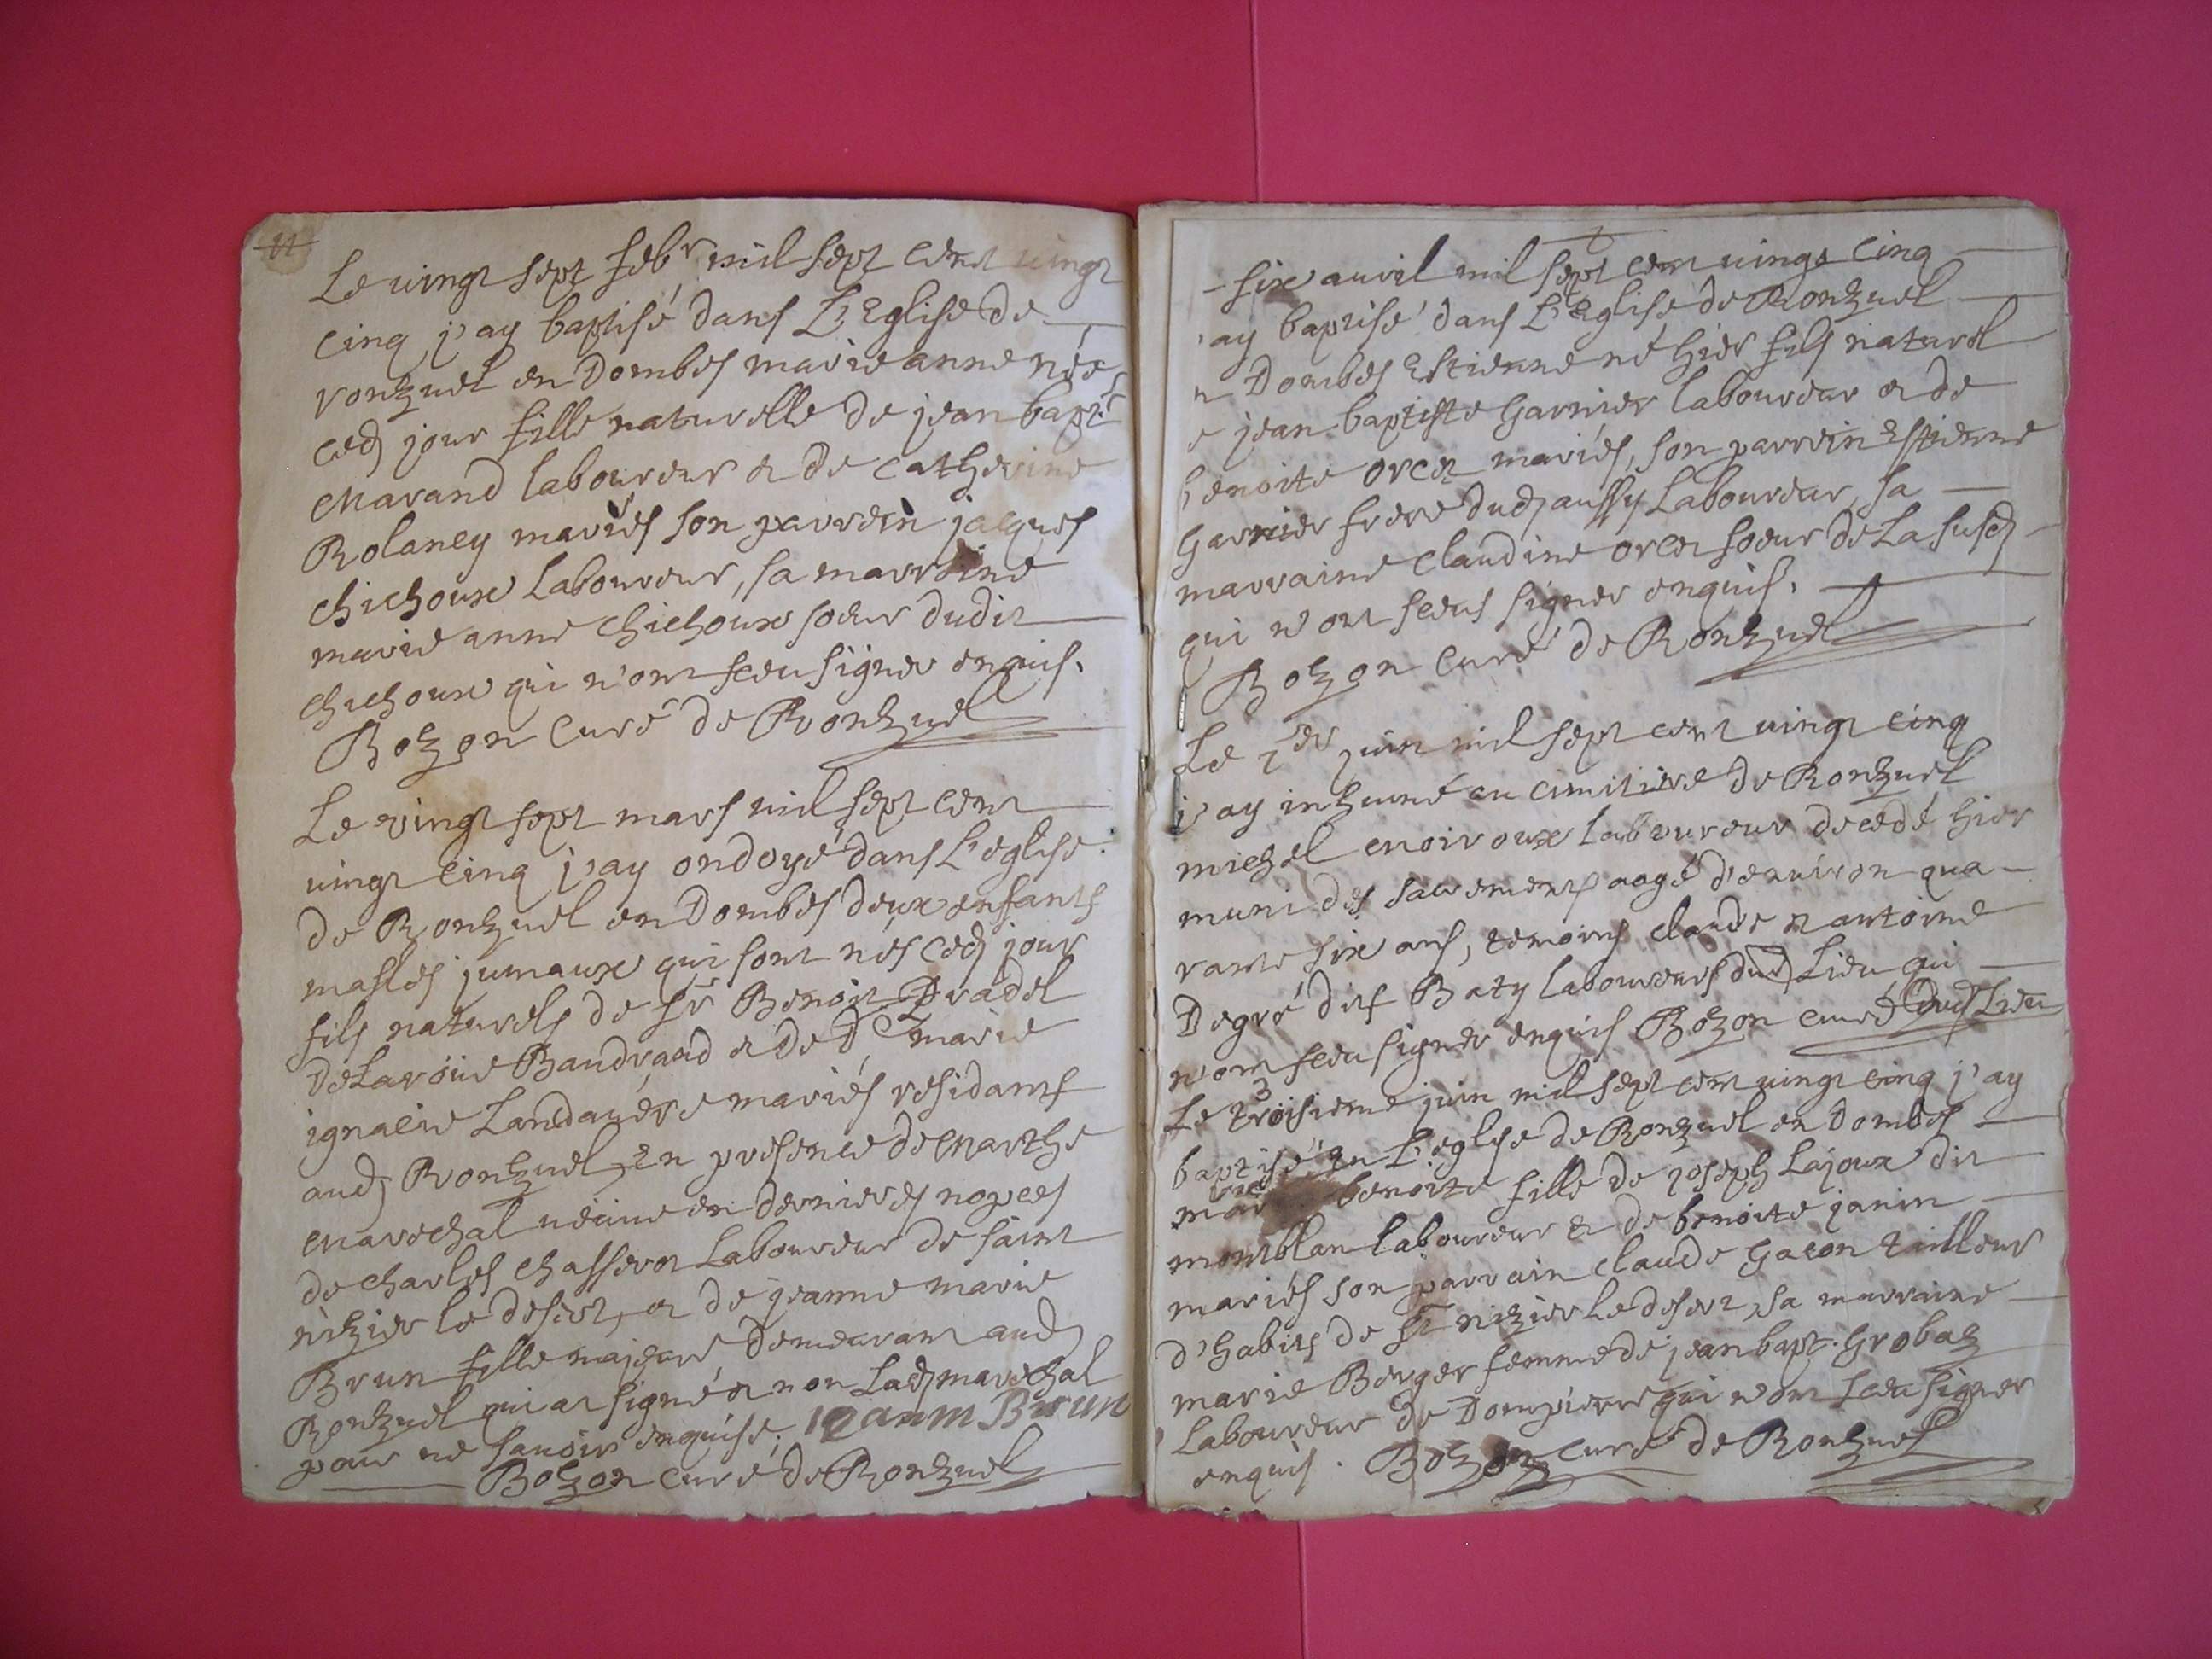 11
Le vingt sept febr mil sept cent vingt
cinq j'ay baptisé dans L'Eglise de
ronzuel en Dombes marie anne née
ced jour fille naturelle de jean bapte
Marand laboureur et de catherine
Rolaney mariés son parrein jacques
chichoux Laboureur, sa marraine
marie anne chichoux soeur dudit
chichoux qui n'ont sceu signer enquis.
Bozon curé de Ronzuel
Le vingt sept mars mil sept cent
vingt cinq j'ay ondoyé dans L'eglise
de Ronzuel en Dombes deux enfants
masles jumaux qui sont nés ced jour
fils naturels de sr Benoit Pradel
DeLaroüe Baudrand et de De marie
ignacie Landauére mariés residants
aud Ronzuel, En presence de Marthe
Marechal veüve en dernieres nopces
de charles chasserot Laboureur de saint
nizier le desert, et de jeanne marie
Brun fille majeure demeurant aud
Ronzuel qui a signé et non Lad marechal
pour ne savoir enquise.
Brun
Bozon curé de Ronzuel
six avril mil sept cent vingt cinq
'ay baptisé dans L'Eglise de Ronzuel
n Dombes Estienne né hier fils naturel
e jean baptiste Garnier laboureur et de
benoite orcet mariés, son parrein Estienne
Garnier frere dud aussy Laboureur, sa
marraine claudine orcet soeur de La susd
qui n'ont sceus signer enquis.
Bozon curé de Ronzuel
Le 1er juin mil sept cent vingt cinq
j'ay inhumé au cimitiere de Ronzuel
michel Moiroux laboureur decedé hier
muni des sacrements aagé d'environ qua-
rante six ans, temoins claude et antoine
Degré dits Baty laboureurs dud Lieu qui
n'ont sceu signer enquis Bozon curé dud Lieu
3
Le troisieme juin mil sept cent vingt cinq j'ay
baptisé en L'eglise de Ronzuel en Dombes
benoite fille de joseph Lajoux dit
montblan laboureur et de benoite janin
mariés son parrain claude Gacon tailleur
d'habits de st nizier Le desert, sa marraine
marie Berger femme de jean bapt. Grobaz
Laboureur de Dompierre qui n'ont sceu signer
enquis. Bozon curé de Ronzuel